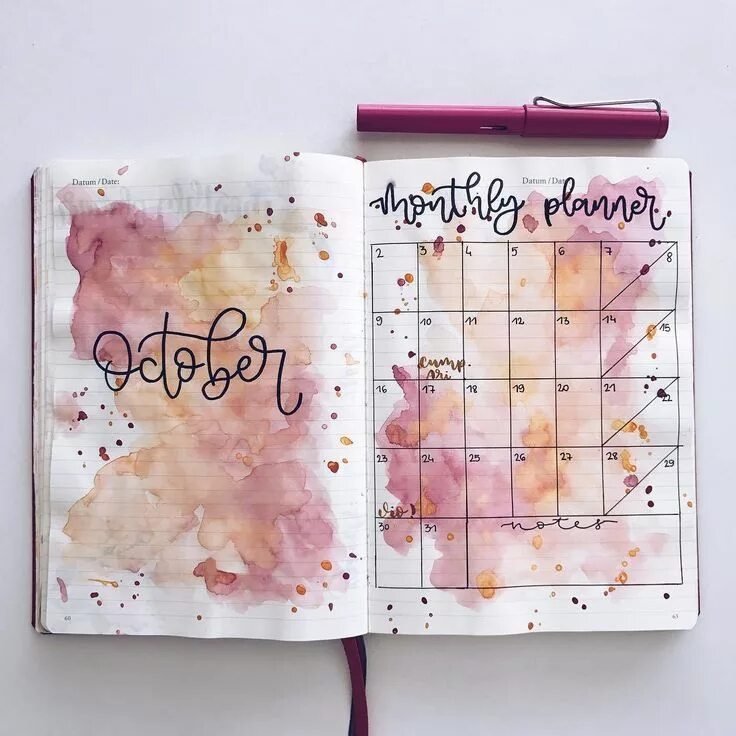 Datum / Date:
October
60
Datum / Dat
monthly planner
2 3 4 5 6 7 8
9 10 11 12 13 14 15
cump.
ări
16 17 18 19 20 21 22
23 24 25 26 27 28 29
30 31 notes
63